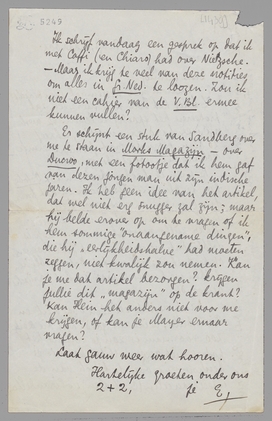 5249
Ik schrijf vandaag een gesprek op dat ik
met Caffi (en Chiaro) had over Nietzsche.
— Maar ik krijg te veel van deze notities
om alles in Gr. Ned. te loozen. Zou ik
niet een cahier van de V. Bl. ermee
kunnen vullen?
Er schijnt een stuk van Sandberg over
me te staan in Morks Magazijn — over
Ducroo, met een fotootje dat ik hem gaf
van dezen jongen man uit zijn indische
jaren. Ik heb geen idee van het artikel,
dat wel niet erg snugger zal zijn; maar
hij belde erover op om te vragen of ik
hem sommige "onaangename dingen",
die hij "eerlijkheidshalve" had moeten
zeggen, niet kwalijk zou nemen. Kan
je me dat artikel bezorgen? krijgen
jullie dit "magazijn" op de krant?
Kan Hein het anders niet voor me
krijgen, of kan je Mayer ernaar
vragen?
Laat gauw weer wat hooren.
Hartelijke groeten onder ons
2 + 2,
je E.